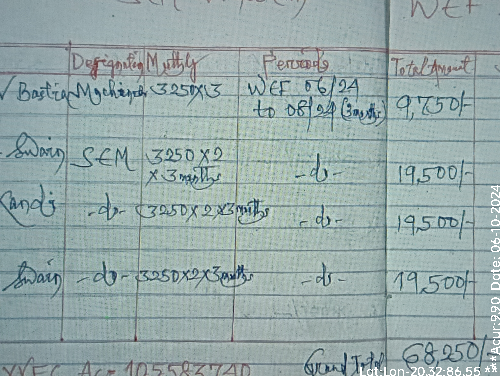 WEF
Designation Monthly Periods Total Amount
Bastia Machinan 3250x3 WEF 06/24
to 08/24 (3months) 9,750/-
Swain SEM 3250x2
x 3 months -do- 19,500/-
-do- 3250x2x3months -do- 19,500/-
Swain -do- 3250x2x3months -do- 19,500/-
Grand Total 68,250/-
Lat:Lon-20.32:86.55 **Acur:990 Date: 06-10-2024